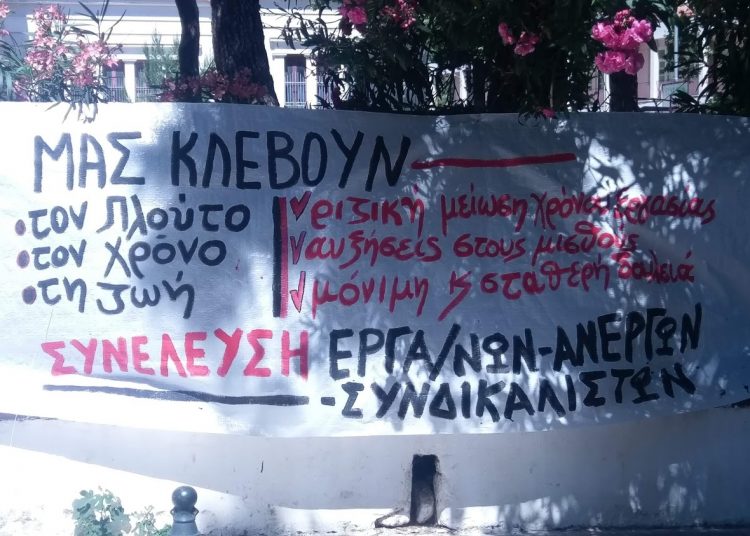 ΜΑΣ ΚΛΕΒΟΥΝ
• τον Πλούτο
• τον Χρόνο
• τη ζωή
✓ ριζική μείωση χρόνου εργασίας
✓ αυξήσεις στους μισθούς
✓ μόνιμη ϗ σταθερή δουλειά
ΣΥΝΕΛΕΥΣΗ ΕΡΓΑ/ΝΩΝ-ΑΝΕΡΓΩΝ
-ΣΥΝΔΙΚΑΛΙΣΤΩΝ